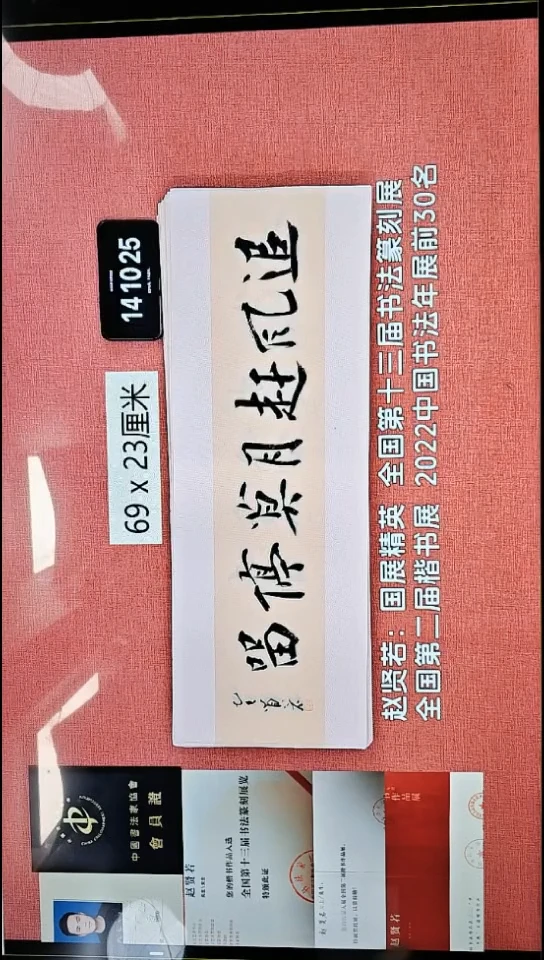 14 10 25
69 x 23厘米
追风赶月莫停留
赵贤若：国展精英 全国第十三届书法篆刻展
全国第二届楷书展 2022中国书法年展前30名
中國書法家協會
會員證
赵贤若
您的楷书作品入选
全国第十三届书法篆刻展览
特颁此证
赵贤若
作品展